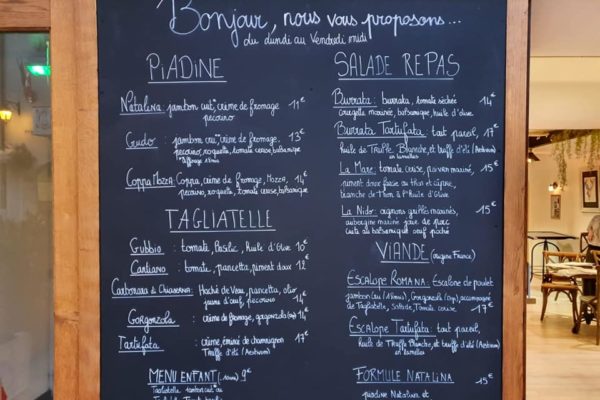 Bonjour, nous vous proposons...
du lundi au Vendredi midi
PIADINE
Natalina: jambon cuit, crème de fromage 11€
pecorino
Guido: jambon cru, crème de fromage, 13€
pecorino, roquette, tomate cerise, balsamique
Coppa Mozza: Coppa, crème de fromage, Mozza, 14€
pecorino, roquette, tomate cerise, balsamique
TAGLIATELLE
Gubbio : tomate, Basilic, Huile d'Olive 10€
Carliano : tomate, pancetta, piment doux 12€
Carbonara di : Haché de Veau, pancetta, 14€
jaune d'œuf, pecorino
Gorgonzola : crème de fromage, gorgonzola 14€
Tartufata : crème, émincé de champignon 17€
Truffe d'été (Aestivum)
MENU ENFANT 9€
Tagliatelle jambon cuit ou
SALADE REPAS
Burrata: burrata, tomate séchée 14€
courgette marinée, balsamique, huile d'olive
Burrata Tartufata: tout pareil, 17€
huile de Truffe Blanche, et truffe d'été (Aestivum)
en lamelles
La Mare: tomate cerise, poivron mariné, 15€
piment doux farcie au thon et câpre,
blanche de Thon à l'huile d'Olive
La Nido: oignons grillés marinés, 15€
aubergine marinée, joue de porc
cuite al balsamique œuf poché
VIANDE (origine France)
Escalope Romana: Escalope de poulet
jambon cru, Gorgonzola, accompagné
de Tagliatelle, Salade, Tomate cerise 17€
Escalope Tartufata: tout pareil,
huile de Truffe Blanche, et truffe d'été (Aestivum) 17€
en lamelles
FORMULE NATALINA 15€
piadine Natalina et